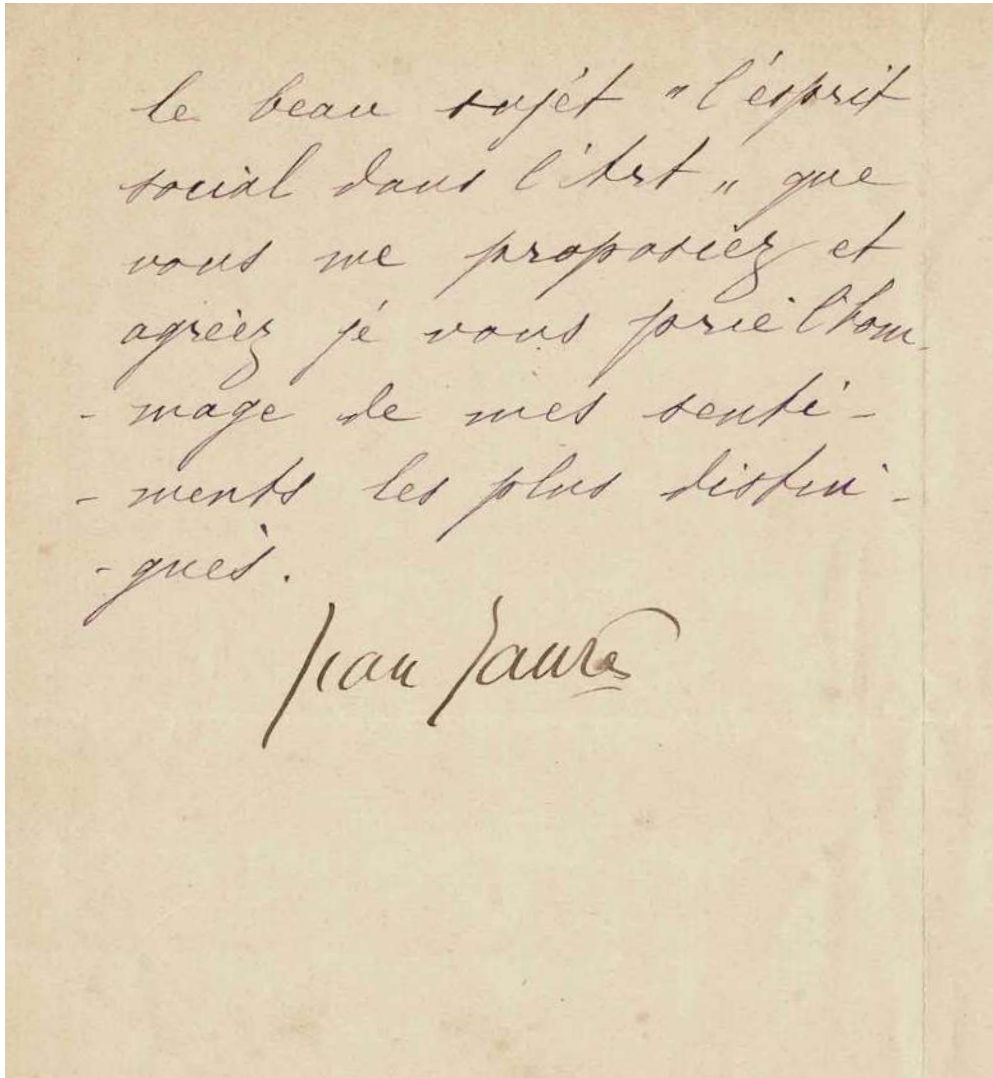 le beau sujét "l'ésprit
social dans l'Art" que
vous me proposiez et
agréez jé vous prie l'hom-
- mage de mes senti -
- ments les plus distin -
- gués.
Jean Jaurès